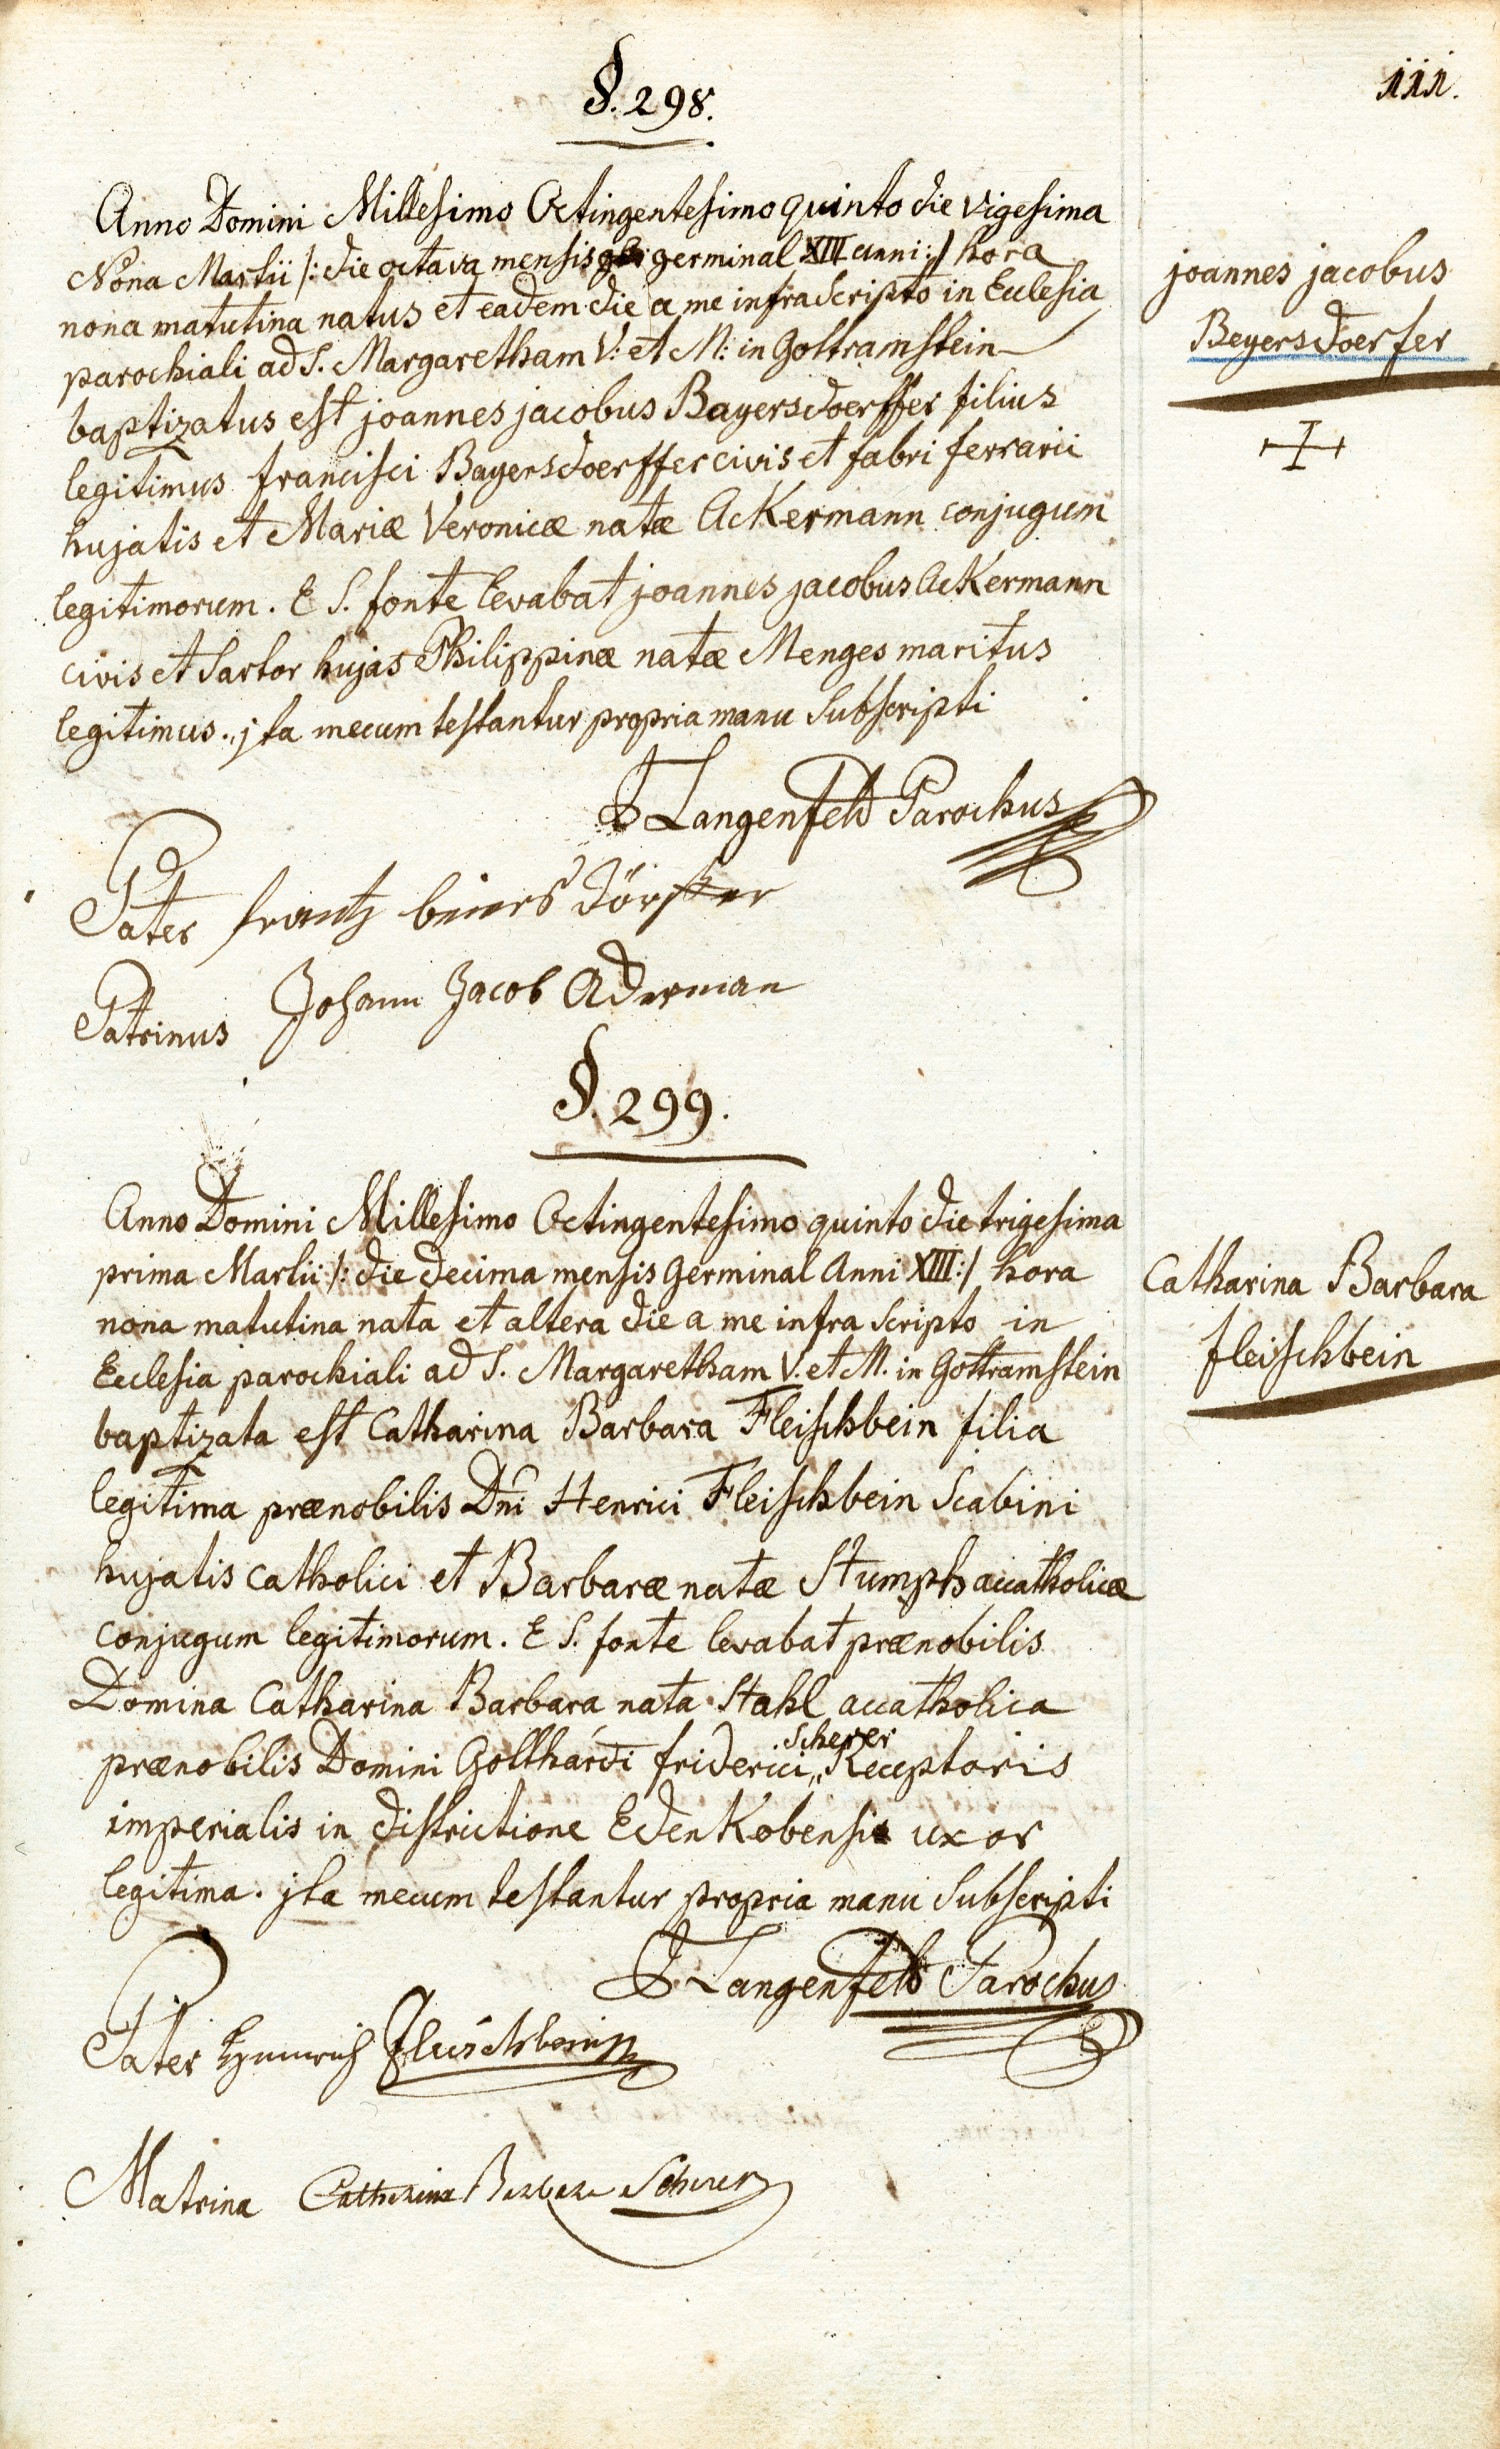 111.
§. 298.
Anno Domini Millesimo Octingentesimo quinto die vigesima
Nona Martii /: die octava mensis germinal XIII anni :/ hora
nona matutina natus et eadem die a me infrascripto in Ecclesia
parochiali ad S. Margaretham V: et M: in Gottramstein
baptizatus est joannes jacobus Bayersdoerffer filius
legitimus francisci Bayersdoerffer civis et fabri ferrarii
hujatis et Mariæ Veronicæ natæ Ackermann conjugum
legitimorum. E S. fonte levabat joannes jacobus Ackermann
civis et Sartor hujas Philippinæ natæ Menges maritus
legitimus. jta mecum testantur propria manu Subscripti
Langenfeld Parochus
Pater frantz beiersdörfer
Patrinus Johann Jacob Ackerman
joannes jacobus
Beyersdoerfer
§. 299.
Anno Domini Millesimo Octingentesimo quinto die trigesima
prima Martii /: die decima mensis Germinal Anni XIII :/ hora
nona matutina nata et altera die a me infra scripto in
Ecclesia parochiali ad S. Margaretham V. et M. in Gottramstein
baptizata est Catharina Barbara Fleischbein filia
legitima prænobilis Dni Henrici Fleischbein Scabini
hujatis catholici et Barbaræ natæ Stumph accatholicæ
conjugum legitimorum. E S. fonte levabat prænobilis
Domina Catharina Barbara nata Stahl accatholica
prænobilis Domini Gotthardi friderici Scherer Receptoris
imperialis in districtione Edenkobensi uxor
legitima. jta mecum testantur propria manu Subscripti
Langenfeld Parochus
Pater Henrich Fleischbein
Matrina Catharina Barbara Scherer
Catharina Barbara
fleischbein